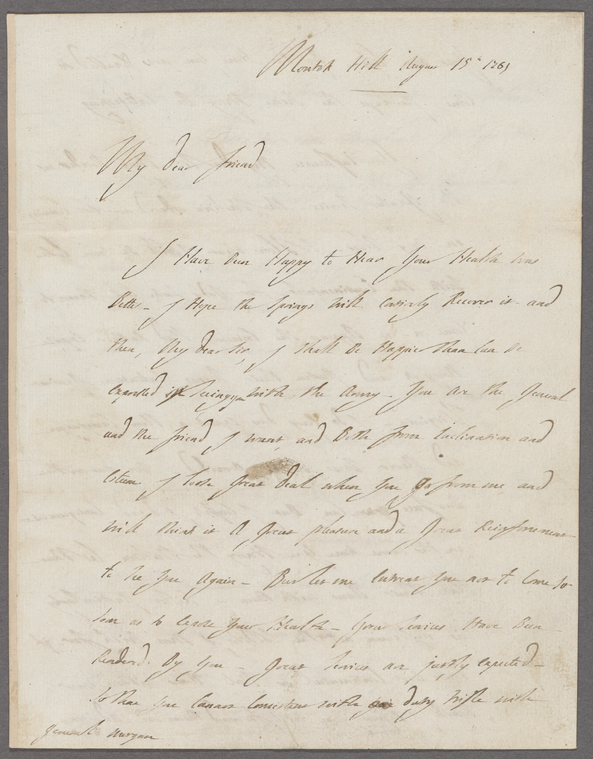 Montok Hill August 15th 1781
My dear friend
I Have Been Happy to Hear Your Health was
Better - I Hope the Springs Will entirely Recover it - and
then, My dear Sir, I shall Be Happier than Can be
expressed in Seeing you with the Army - You are the General
and the friend I want, and Both from inclination and
esteem I loose a Great deal when you Go from me and
will think it A Great pleasure and a Great Reinforcement
to See You Again - But let me Entreat You not to Come So
Soon as to expose Your Health - Great Services Have Been
Rendered By You - Great Services are justly expected -
So that you Cannot Consistent with duty trifle with
General Morgan